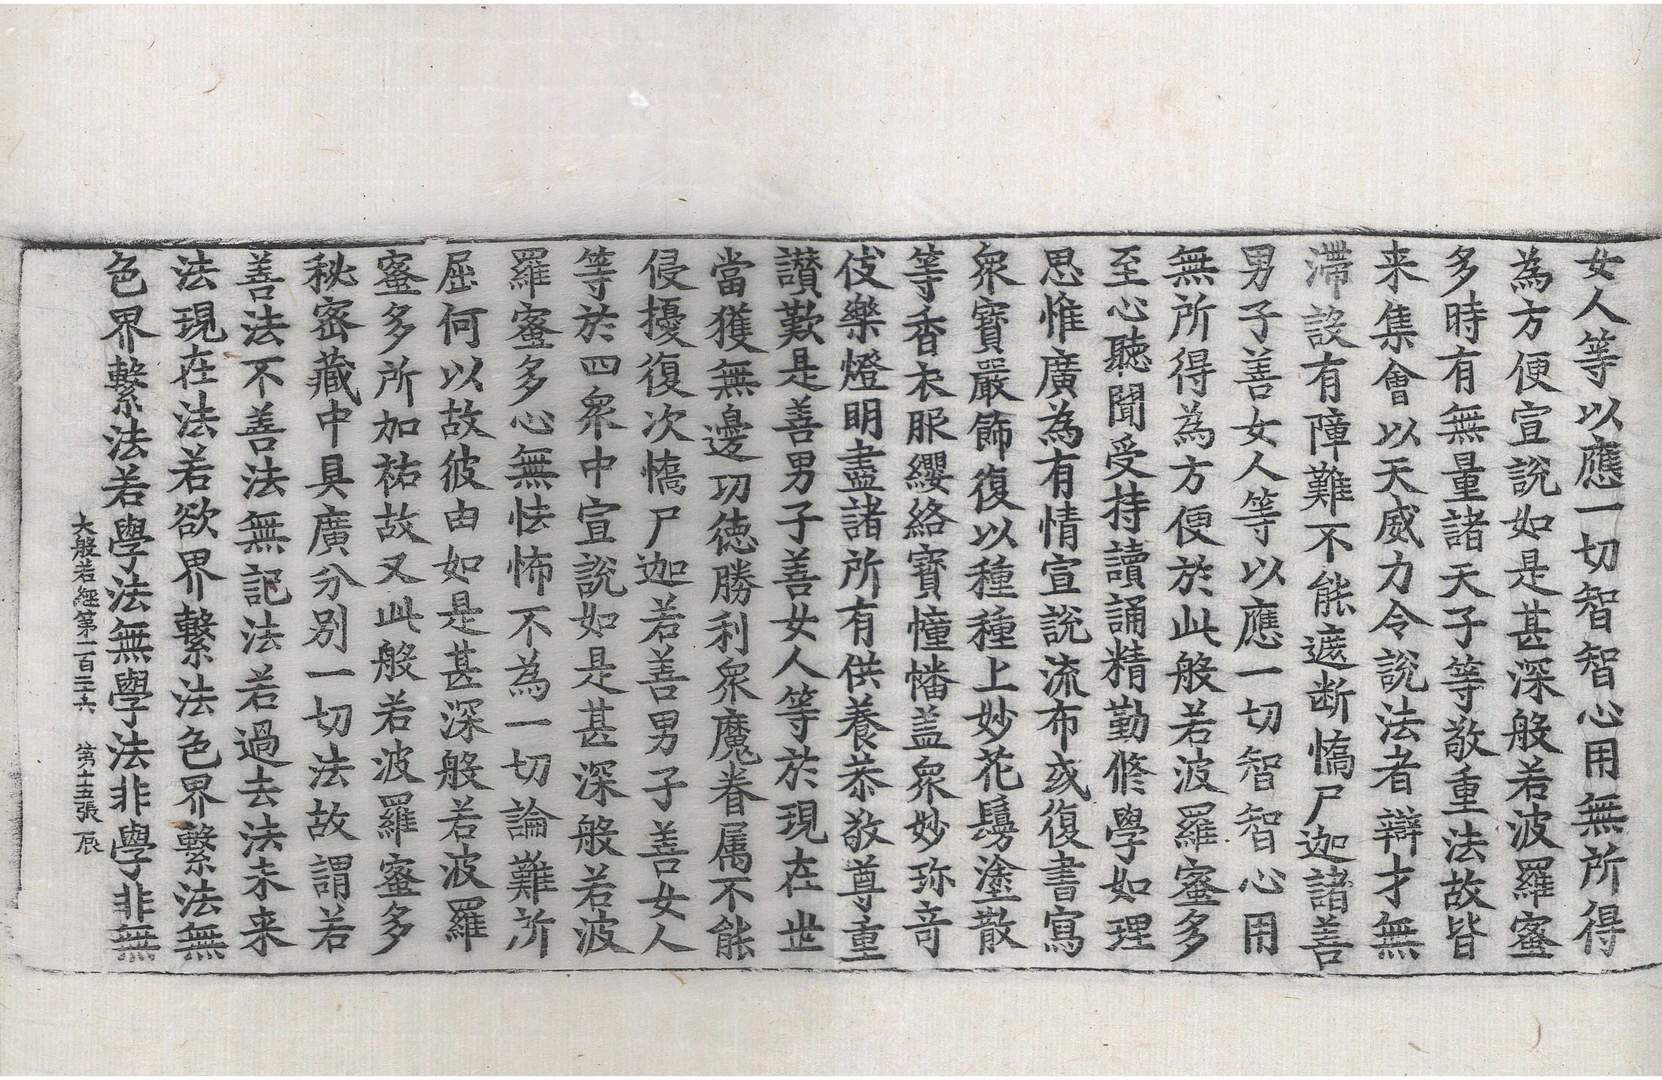 女人等以應一切智智心用無所得
為方便宣說如是甚深般若波羅蜜
多時有無量諸天子等敬重法故皆
来集會以天威力令說法者辯才無
滯設有障難不能遮断憍尸迦諸善
男子善女人等以應一切智智心用
無所得為方便於此般若波羅蜜多
至心聽聞受持讀誦精勤修學如理
思惟廣為有情宣說流布或復書寫
衆寶嚴飾復以種種上妙花鬘塗散
等香衣服纓絡寶幢幡盖衆妙珎竒
伎樂燈明盡諸所有供養恭敬尊重
讃歎是善男子善女人等於現在世
當獲無邊功德勝利衆魔眷属不能
侵擾復次憍尸迦若善男子善女人
等於四衆中宣說如是甚深般若波
羅蜜多心無怯怖不為一切論難所
屈何以故彼由如是甚深般若波羅
蜜多所加祐故又此般若波羅蜜多
秘密藏中具廣分别一切法故謂若
善法不善法無記法若過去法未来
法現在法若欲界繫法色界繫法無
色界繫法若學法無學法非學非無
大般若經第一百二十六 第十五張 辰